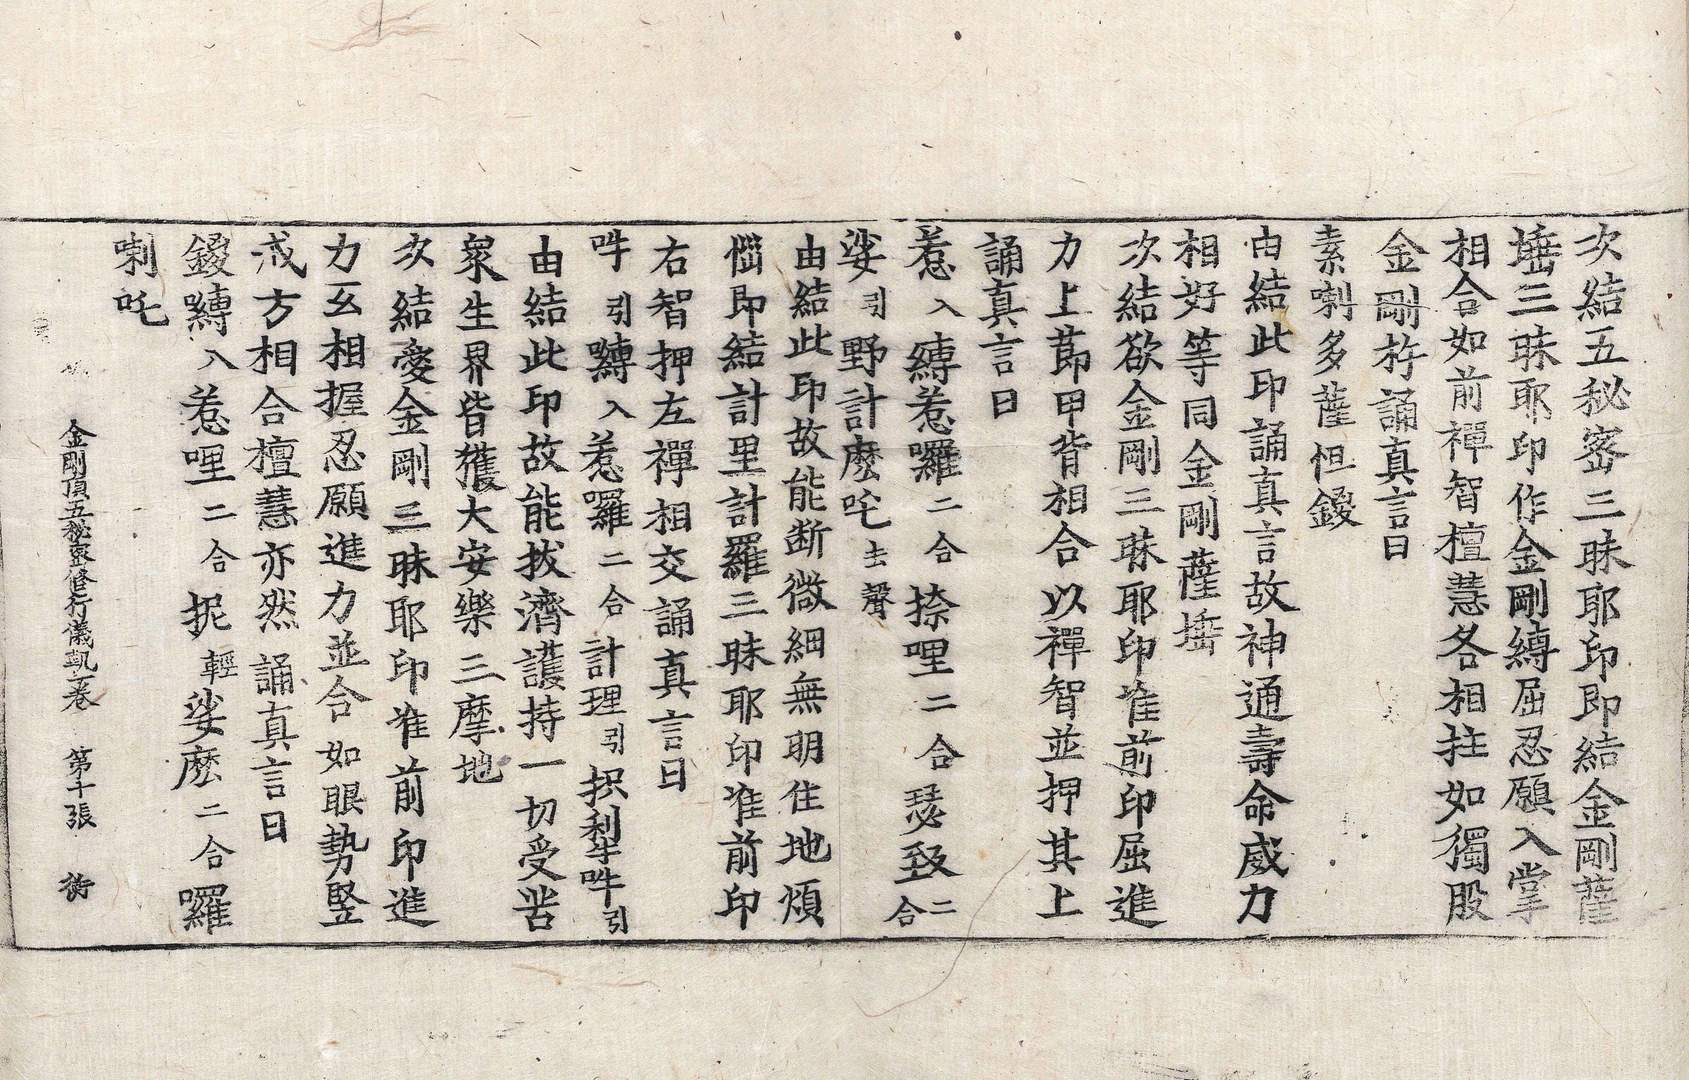 次結五秘密三昧耶印即結金剛薩
埵三昧耶印作金剛縛屈忍願入掌
相合如前禪智檀慧各相拄如獨股
金剛杵誦真言曰
素喇多薩怛鑁
由結此印誦真言故神通壽命威力
相好等同金剛薩埵
次結欲金剛三昧耶印准前印屈進
力上莭甲背相合以禪智並押其上
誦真言曰
惹入縛惹囉二合捺哩二合瑟致二合
娑引野計麽吒去聲
由結此印故能断微細無明住地煩
惱即結計里計羅三昧耶印准前印
右智押左禪相交誦真言曰
吽引嚩入惹囉二合計理引抧利吽引
由結此印故能拔濟護持一切受苦
衆生界皆獲大安樂三摩地
次結愛金剛三昧耶印准前印進
力互相握忍願進力並合如眼勢竪
戒方相合檀慧亦然誦真言曰
鑁嚩入惹哩二合抳輕娑麽二合囉
喇吒
金剛頂五秘密修行儀軌一卷 第十張